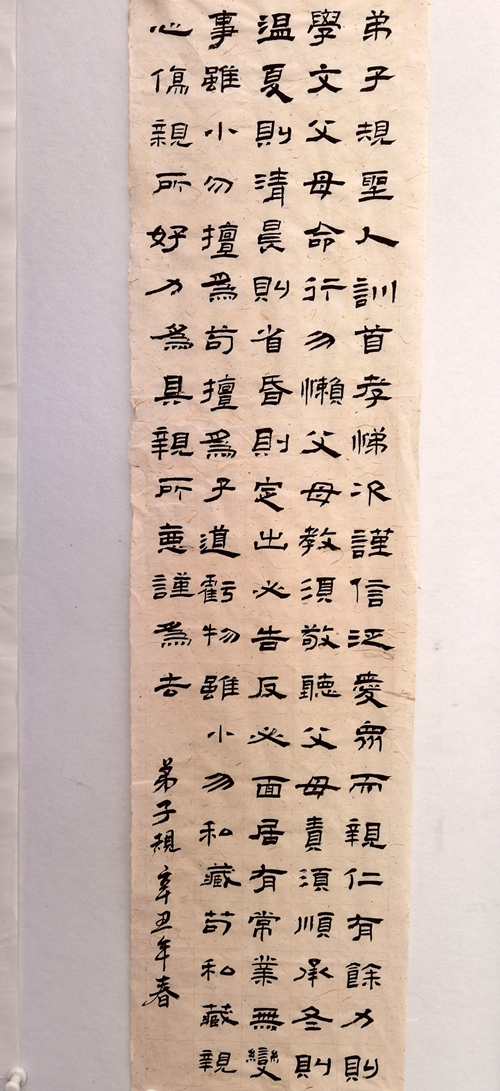 弟子規聖人訓首孝悌次謹信泛愛眾而親仁有餘力則
學文父母命行勿懶父母教須敬聽父母責須順承冬則
温夏則清晨則省昏則定出必告反必面居有常業無變
事雖小勿擅爲苟擅爲子道虧物雖小勿私藏苟私藏親
心傷親所好力爲具親所惡謹爲去
弟子規辛丑年春